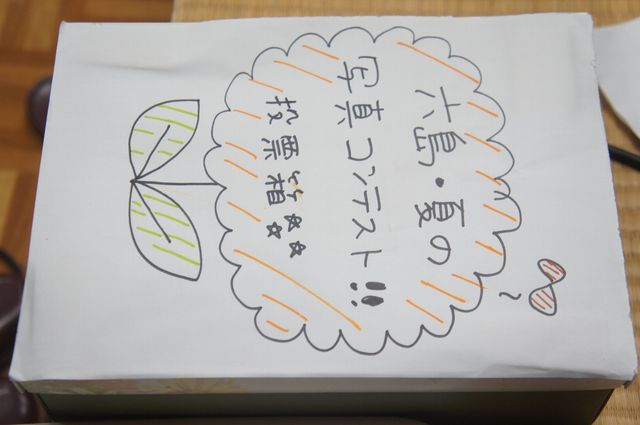 六島・夏の
写真コンテスト!!
投票箱